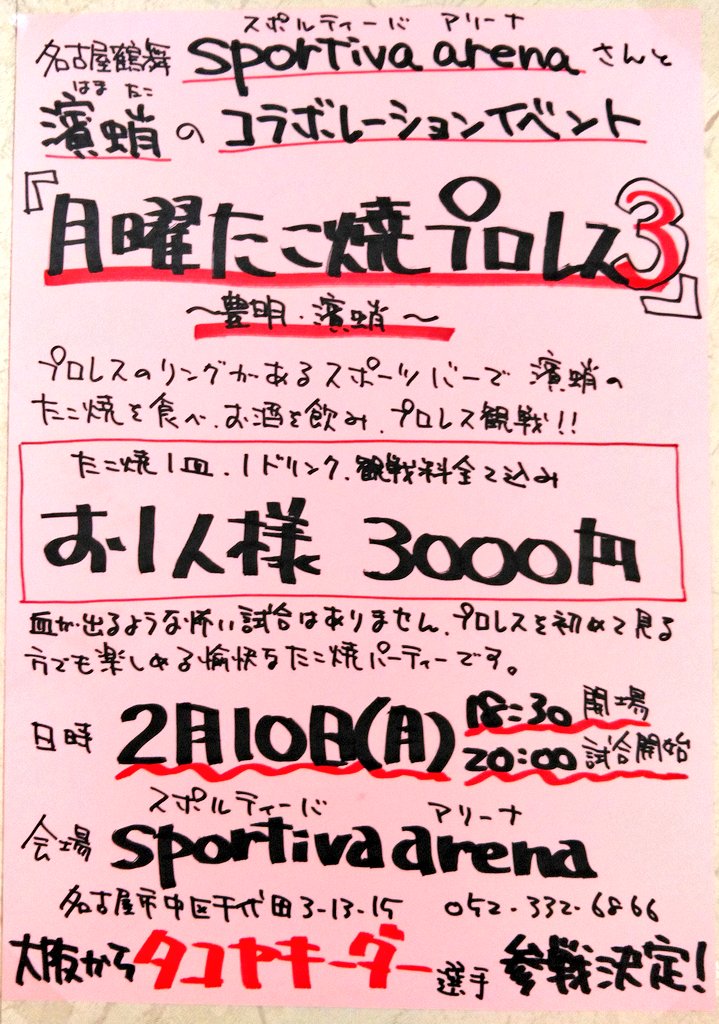 スポルティーバ アリーナ
名古屋鶴舞 sportiva arena さんと
はま たこ
濱蛸 の コラボレーションイベント
『月曜たこ焼プロレス3』
～豊明・濱蛸～
プロレスのリングがあるスポーツバーで 濱蛸の
たこ焼を食べ、お酒を飲み、プロレス観戦!!
たこ焼1皿、1ドリンク、観戦料全て込み
お1人様 3000円
血が出るような怖い試合はありません。プロレスを初めて見る
方でも楽しめる愉快なたこ焼パーティーです。
日時 2月10日(月) 18:30 開場
20:00 試合開始
スポルティーバ アリーナ
会場 sportiva arena
名古屋市中区千代田3-13-15 052-332-6866
大阪から タコヤキーダー 選手 参戦決定!